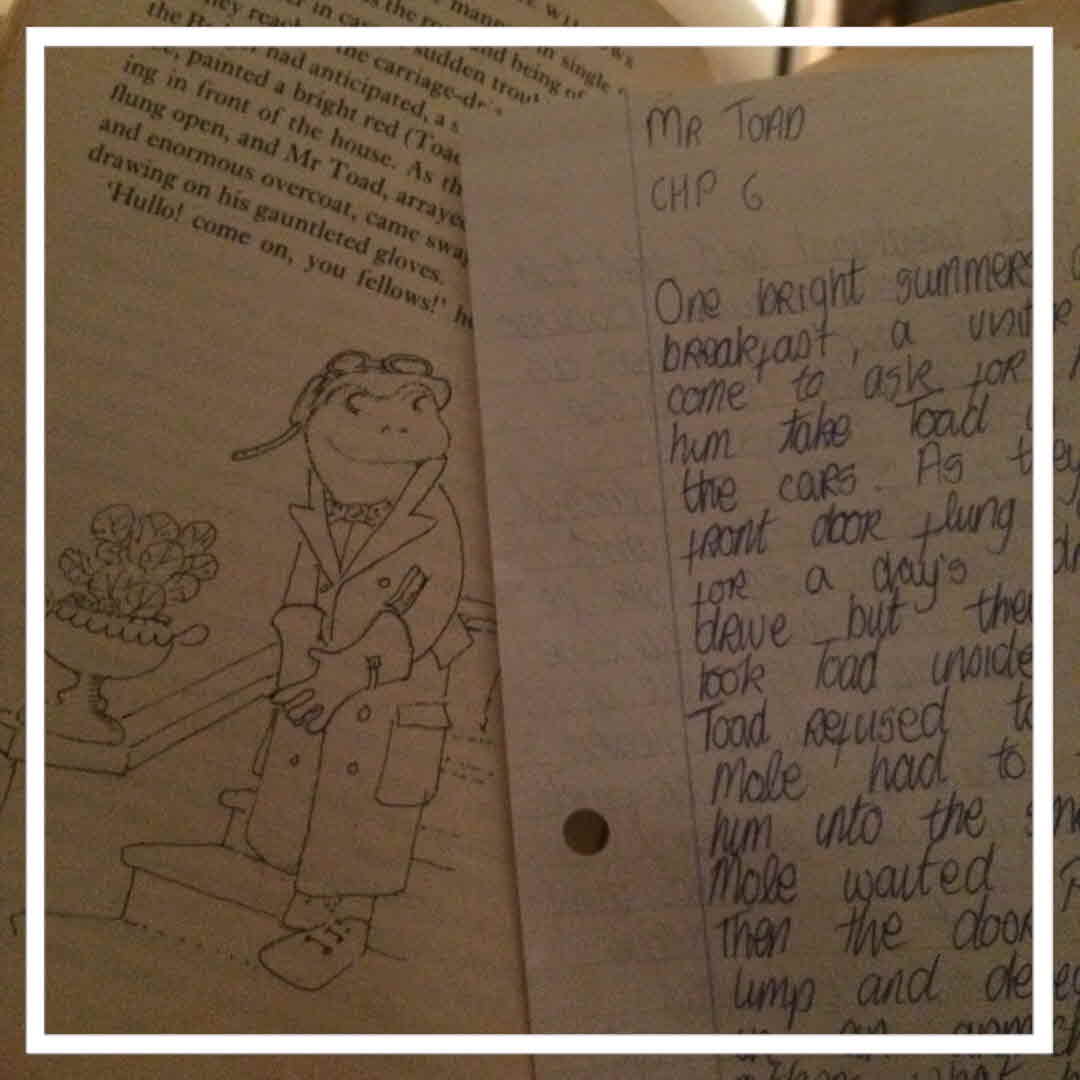 manner in single
in ca s the r nd being of
they reach the carriage-dr
the Ba r had anticipated, a s sudden trou
e, painted a bright red (Toad
ing in front of the house. As th
flung open, and Mr Toad, arrayed
and enormous overcoat, came swa
drawing on his gauntleted gloves.
'Hullo! come on, you fellows!' he
MR TOAD
CHP 6
One bright summers
breakfast, a visit
come to ask for
him take Toad
the cars. As they
front door flung
for a day's dr
drive but then
took Toad inside
Toad refused to
Mole had to
him into the sm
Mole waited
Then the door
limp and deje
in an armch